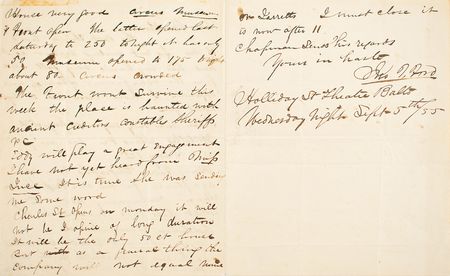 House very good Circus Museum
& Front open The latter opened last
Saturday to 250 tonight it has only
50 Museum opened to 175 tonight
about 80 Circus crowded
The Front wont survive this
week the place is haunted with
ancient creditors Constables Sheriff
&c
Eddy will play a great engagement
I have not yet heard from Miss
It is true She was Sunday
me some word
Charles St opens on Monday it will
not be I opine of long duration
It will be the only 50 ct house
But as a general thing the
Company will not equal mine
Mr Jerretts I must close it
is now after 11
Chapman Sends his regards
Yours in haste
Jno T. Ford
Holliday St Theatre Balto
Wednesday Night Sept 5th/55